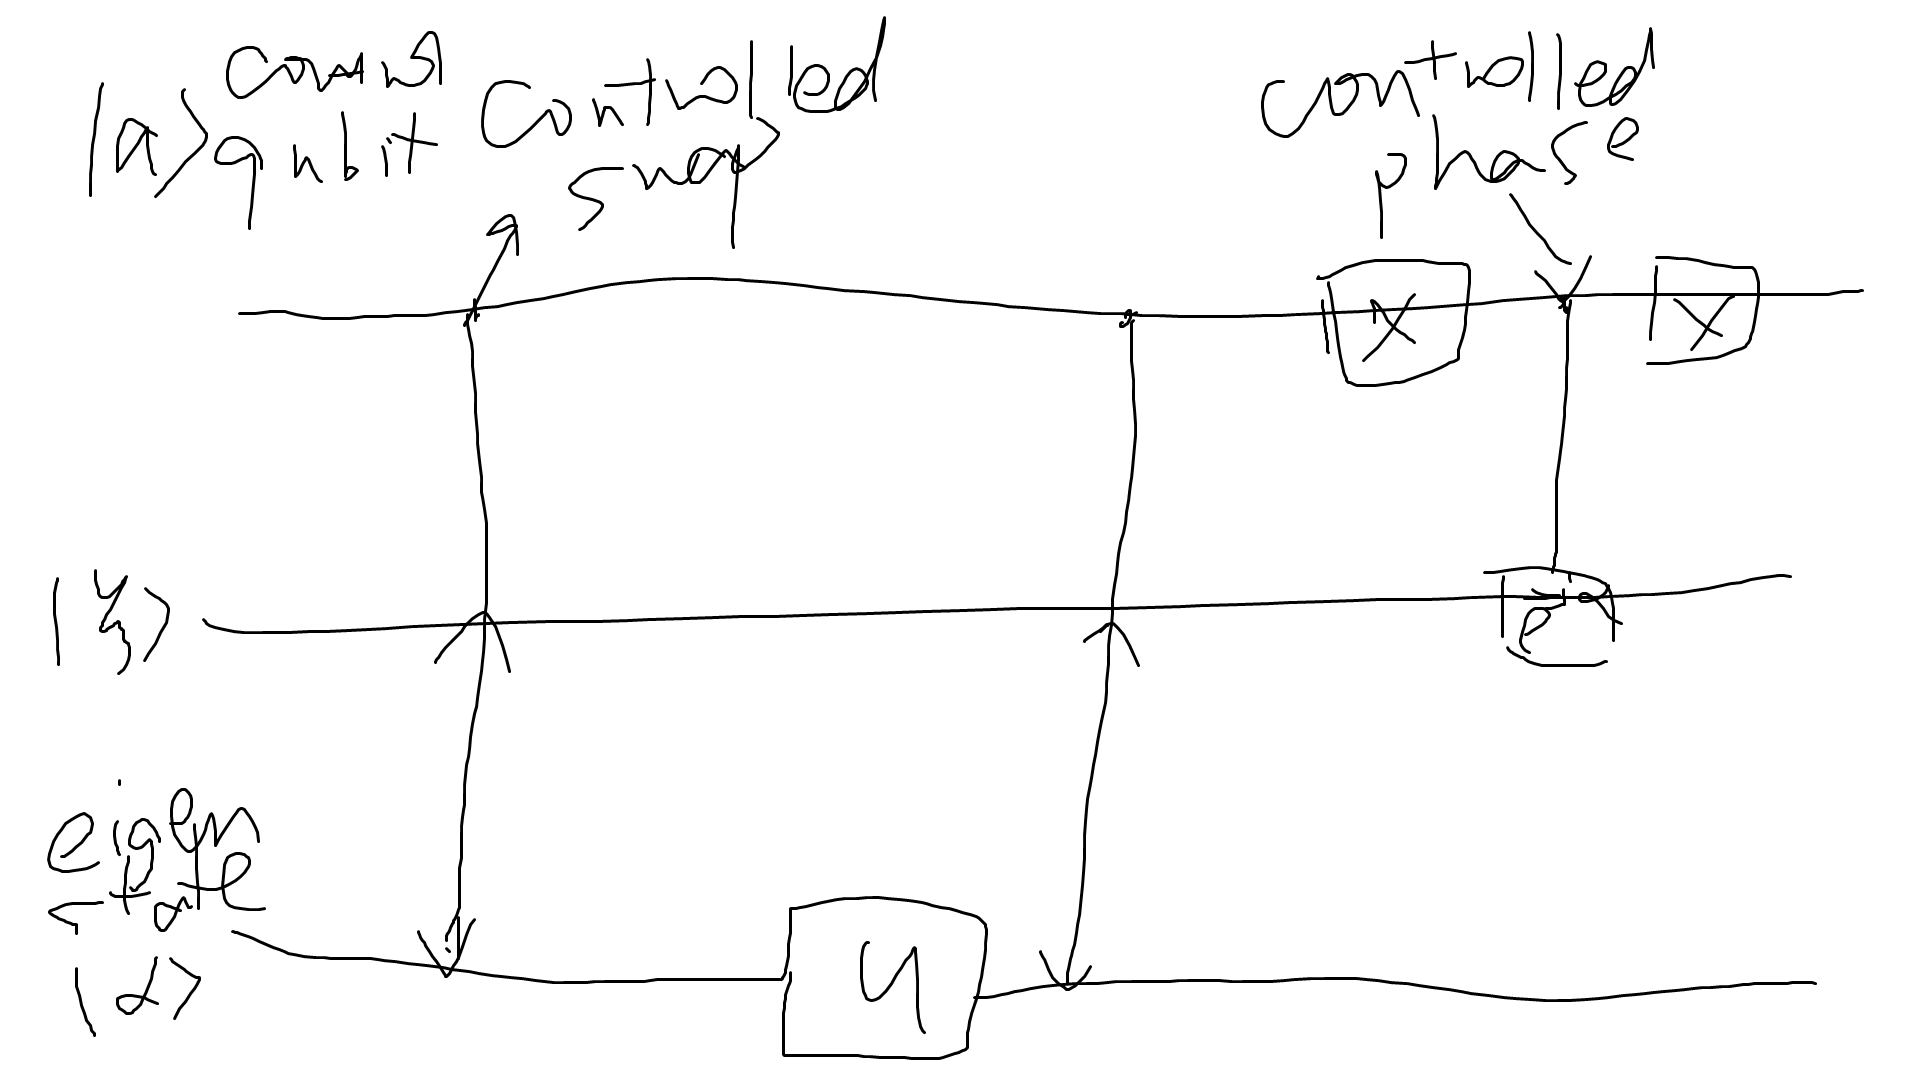 |a> control qubit
controlled swap
controlled phase
X
X
|ξ>
e^{-iα}
eigen state
|α>
U